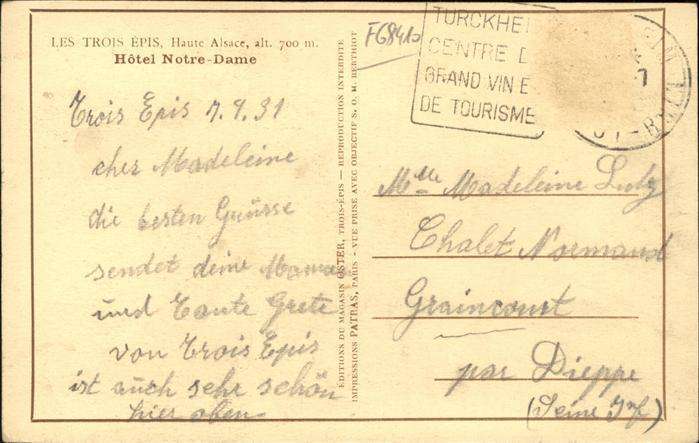 LES TROIS ÉPIS, Haute Alsace, alt. 700 m.
Hôtel Notre-Dame
Trois Epis 7.9.31
cher Madeleine
die besten Grüsse
sendet deine Mama
und Tante Grete
von Trois Epis
ist auch sehr schön
hier oben
ÉDITIONS DU MAGASIN OSTER, TROIS-ÉPIS — REPRODUCTION INTERDITE
IMPRESSIONS PATRAS, PARIS - VUE PRISE AVEC OBJECTIF S. O. M. BERTHIOT
TURCKHEI
CENTRE D
GRAND VIN E
DE TOURISME
Mlle Madeleine Lutz
Chalet Normand
Graincourt
par Dieppe
(Seine Inf)